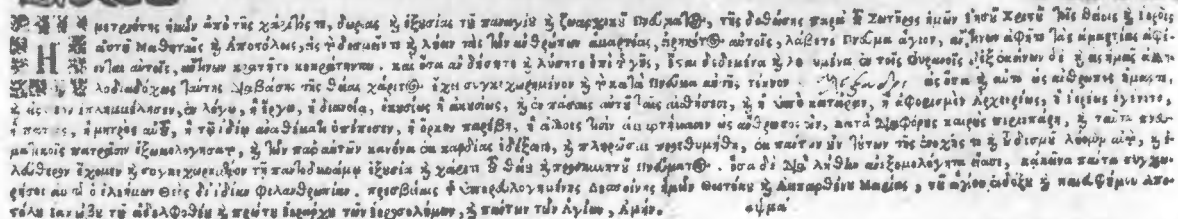 Ἡ μετριότης ἡμῶν ἀπὸ τῆς χάριτός τε, δωρεᾶς καὶ ἐξουσίας τοῦ παναγίου καὶ ζωαρχικοῦ Πνεύματος, τῆς δοθείσης παρὰ τοῦ Σωτῆρος ἡμῶν Ἰησοῦ Χριστοῦ τοῖς θείοις καὶ ἱεροῖς
αὐτοῦ Μαθηταῖς καὶ Ἀποστόλοις, εἰς τὸ δεσμεῖν τε καὶ λύειν τὰς τῶν ἀνθρώπων ἁμαρτίας, εἰρηκότος αὐτοῖς, λάβετε Πνεῦμα ἅγιον, ἄν τινων ἀφῆτε τὰς ἁμαρτίας ἀφί-
ενται αὐτοῖς, ἄν τινων κρατῆτε κεκράτηνται. καὶ ὅσα ἂν δήσητε καὶ λύσητε ἐπὶ τῆς γῆς, ἔσται δεδεμένα καὶ λελυμένα ἐν τοῖς Οὐρανοῖς. ἐξ ἐκείνων δὲ καὶ εἰς ἡμᾶς ἀλλη-
λοδιαδόχως ταύτης διαβάσης τῆς θείας χάριτος ἔχει συγκεχωρημένον καὶ τὸ κατὰ Πνεῦμα αὐτῆς τέκνον εἰς ὅσα καὶ αὐτὸ ὡς ἄνθρωπος ἥμαρτε,
καὶ εἰς Θεὸν ἐπλημμέλησεν, ἐν λόγῳ, ἢ ἔργῳ, ἢ διανοίᾳ, ἑκουσίως ἢ ἀκουσίως, καὶ ἐν πάσαις αὐτοῦ ταῖς αἰσθήσεσι, καὶ ἢ ὑπὸ κατάραν, ἢ ἀφορισμὸν Ἀρχιερέως, ἢ ἱερέως ἐγένετο,
ἢ πατρὸς, ἢ μητρὸς αὐτοῦ, ἢ τῷ ἰδίῳ ἀναθέματι ὑπέπεσεν, ἢ ὅρκον παρέβη, ἢ ἄλλοις τισὶν ἁμαρτήμασιν ὡς ἄνθρωπος ὢν, κατὰ διαφόρους καιροὺς περιεπάρη, καὶ ταῦτα πνευ-
ματικοῖς πατράσιν ἐξωμολογήσατο, καὶ τὸν παρ' αὐτῶν κανόνα ἐκ καρδίας ἐδέξατο, καὶ πληρῶσαι προεθυμήθη, ἐκ πάντων οὖν τούτων τῆς ἐνοχῆς τε καὶ τοῦ δεσμοῦ λύομεν αὐτὸ, καὶ ἐ-
λεύθερον ἔχομεν καὶ συγκεχωρημένον τῇ παντοδυνάμῳ ἐξουσίᾳ καὶ χάριτι τοῦ θείου καὶ προσκυνητοῦ Πνεύματος. ὅσα δὲ διὰ λήθην ἀνεξομολόγητα εἴασε, κἀκεῖνα πάντα συγχω-
ρήσοι αὐτῷ ὁ ἐλεήμων Θεὸς δι' ἰδίαν φιλανθρωπίαν. πρεσβείαις τῆς ὑπερευλογημένης Δεσποίνης ἡμῶν Θεοτόκου καὶ Ἀειπαρθένου Μαρίας, τοῦ ἁγίου ἐνδόξου καὶ πανευφήμου Ἀπο-
στόλου Ἰακώβου τοῦ ἀδελφοθέου καὶ πρώτου ἱεράρχου τῶν Ἱεροσολύμων, καὶ πάντων τῶν Ἁγίων, Ἀμήν. αψμα